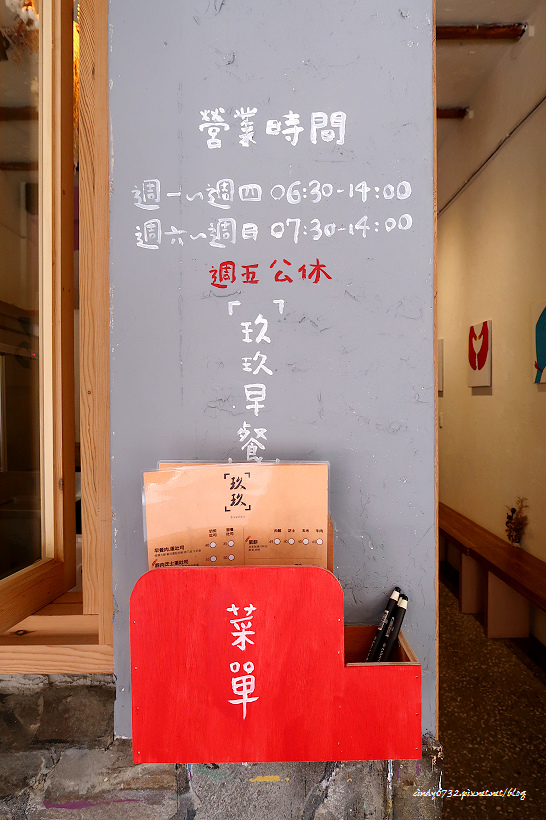 營業時間
週一~週四 06:30-14:00
週六~週日 07:30-14:00
週五公休
「玖玖早餐
玖玖
菜單
cindy0732.pixnet.net/blog